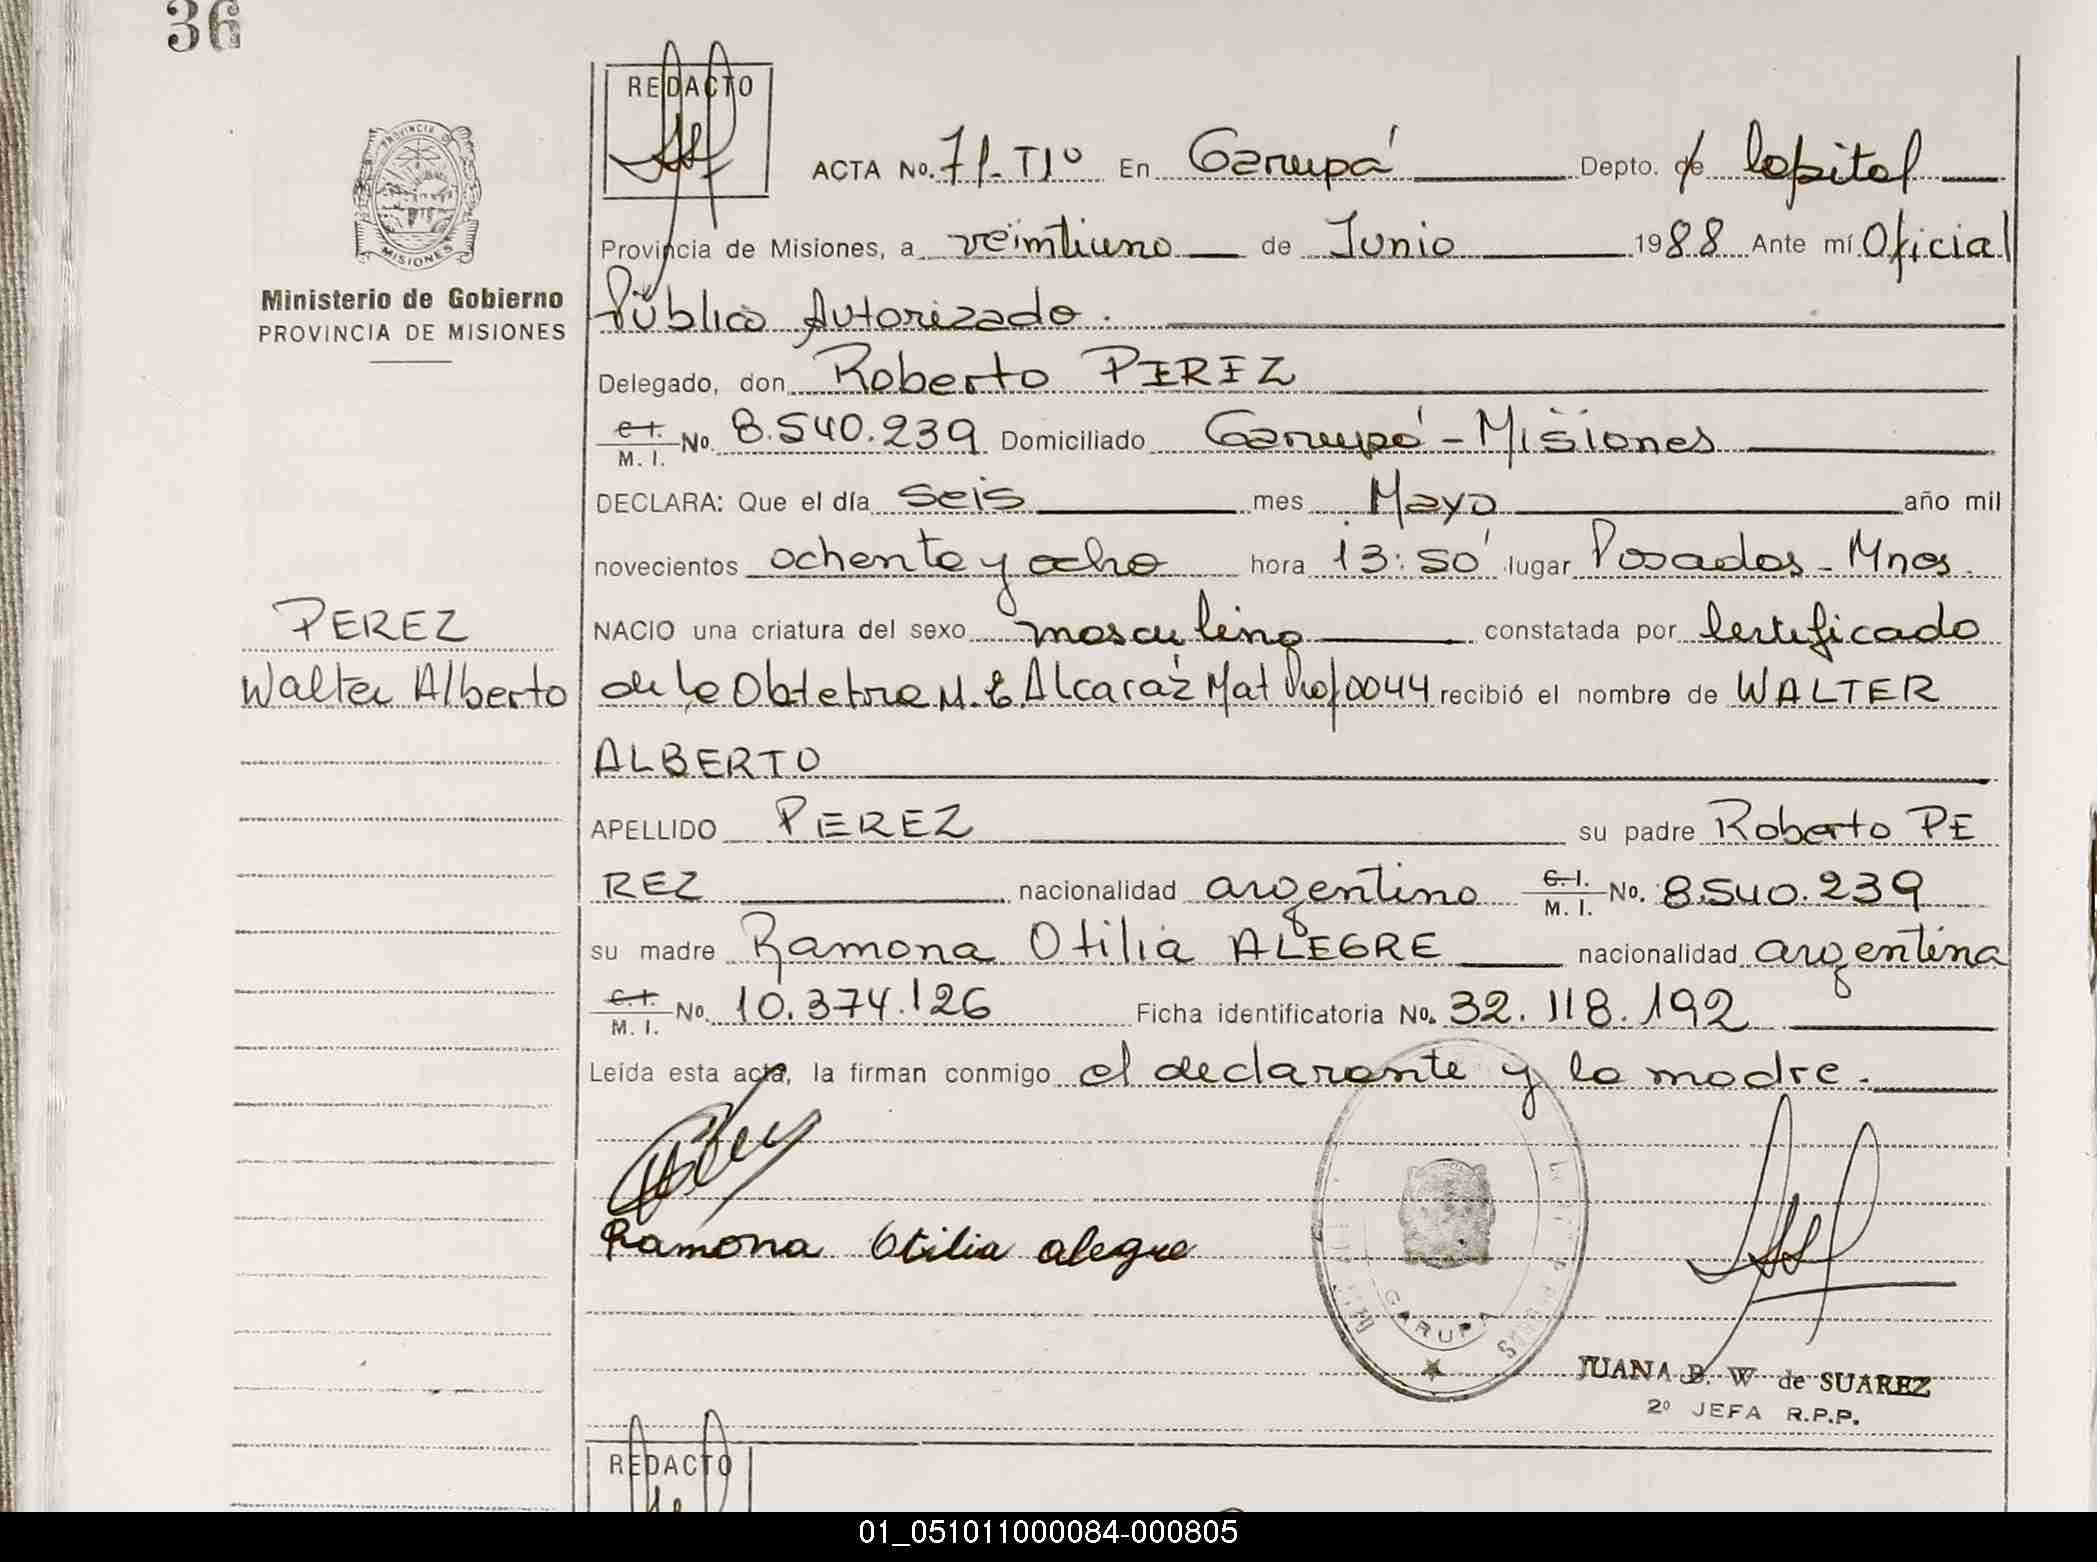 36
REDACTO
ACTA No. 71-TIº En Garupá Depto. de Capital
PROVINCIA DE MISIONES
Provincia de Misiones, a veintiuno de Junio 1988 Ante mí Oficial
Ministerio de Gobierno
PROVINCIA DE MISIONES
Público Autorizado.
Delegado, don Roberto PEREZ
C.I. M. I. No. 8.540.239 Domiciliado Garupá - Misiones
DECLARA: Que el día seis mes Mayo año mil
novecientos ochenta y ocho hora 13:50' lugar Posadas - Mnes.
PEREZ
Walter Alberto
NACIO una criatura del sexo masculino constatada por certificado
de la Obtetra M. E. Alcaraz Mat Prof 0044 recibió el nombre de WALTER
ALBERTO
APELLIDO PEREZ su padre Roberto PE
REZ nacionalidad argentino C.I. M. I. No. 8.540.239
su madre Ramona Otilia ALEGRE nacionalidad argentina
C.I. M. I. No. 10.374.126 Ficha identificatoria No. 32.118.192
Leída esta acta, la firman conmigo el declarante y la madre.
Ramona Otilia alegre
GARUPA
JUANA B. W de SUAREZ
2º JEFA R.P.P.
REDACTO
01_051011000084-000805